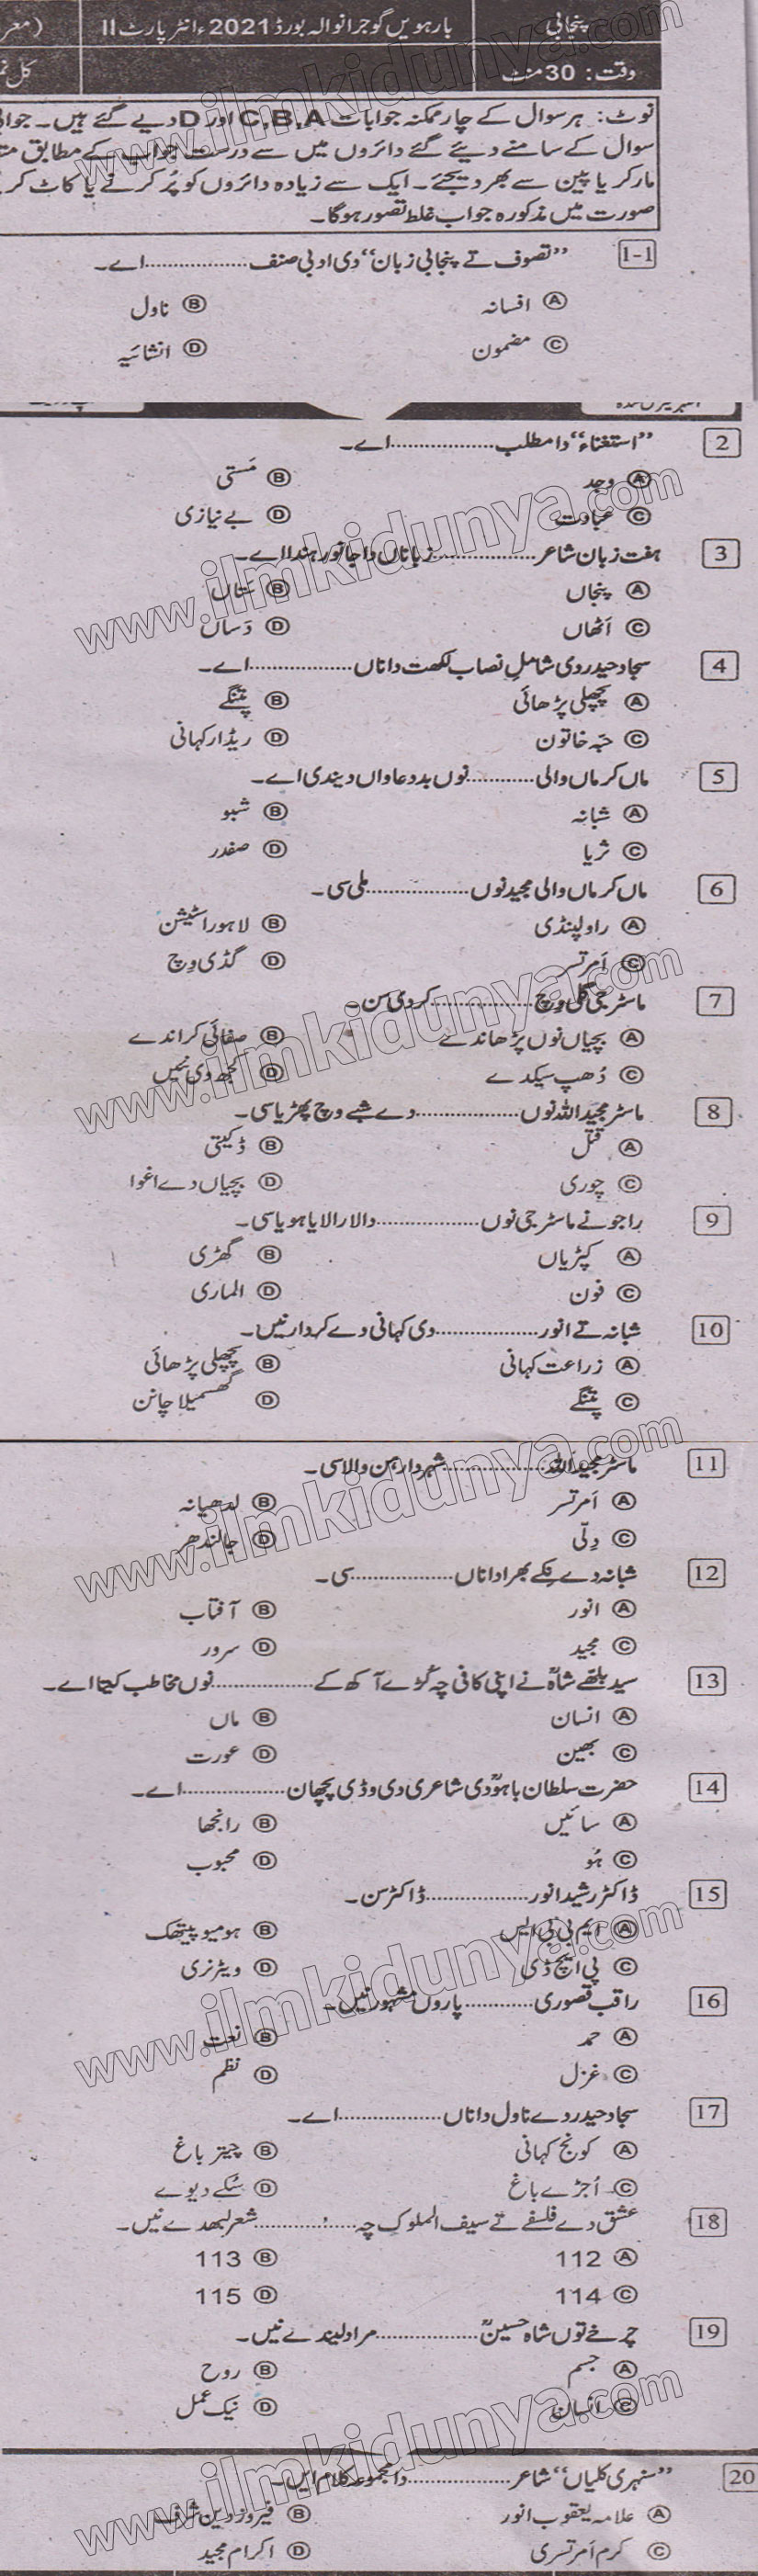 پنجابی
بارہویں گوجرانوالہ بورڈ 2021ء انٹر پارٹ II
(معر
وقت: 30 منٹ
کل نم
نوٹ: ہر سوال کے چار ممکنہ جوابات C,B,A اور D دیے گئے ہیں۔ جوابی
سوال کے سامنے دیئے گئے دائروں میں سے درست جواب کے مطابق متع
مارکر یا پین سے بھر دیجئے۔ ایک سے زیادہ دائروں کو پُر کرنے یا کاٹ کر
صورت میں مذکورہ جواب غلط تصور ہوگا۔
1-1 ”تصوف تے پنجابی زبان“ دی ادبی صنف ............ اے۔
A افسانہ B ناول
C مضمون D انشائیہ
2 ”استغناء“ دا مطلب ............ اے۔
A وجد B مَستی
C عبادت D بے نیازی
3 ہفت زبان شاعر ............ زباناں دا جانو رہندا اے۔
A پنجاں B سَتاں
C اَٹھاں D دَساں
4 سجاد حیدر دی شاملِ نصاب لکھت دا ناں ............ اے۔
A پچھلی پڑھائی B پتنگے
C حبّہ خاتون D ریڈار کہانی
5 ماں کرماں والی ............ نوں بددعاواں دیندی اے۔
A شبانہ B شبو
C ثریا D صفدر
6 ماں کرماں والی مجید نوں ............ ملی سی۔
A راولپنڈی B لاہور اسٹیشن
C اَمرتسر D گڈی وِچ
7 ماسٹر جی گلی وِچ ............ کردی سن۔
A بچیاں نوں پڑھاندے B صفائی کراندے
C دُھپ سیکدے D کجھ وی نئیں
8 ماسٹر مجید اللہ نوں ............ دے شبے وِچ پھڑیا سی۔
A قتل B ڈکیتی
C چوری D بچیاں دے اغوا
9 راجو نے ماسٹر جی نوں ............ دا لارا لایا ہویا سی۔
A کپڑیاں B گھڑی
C فون D الماری
10 شبانہ تے انور ............ دی کہانی دے کردار نیں۔
A زراعت کہانی B پچھلی پڑھائی
C پتنگے D گھسمیلا چانن
11 ماسٹر مجید اللہ ............ شہر دا رہن والا سی۔
A اَمرتسر B لدھیانہ
C دِلّی D جالندھر
12 شبانہ دے نِکے بھرا دا ناں ............ سی۔
A انور B آفتاب
C مجید D سرور
13 سید بلھے شاہؒ نے اپنی کافی چہ کُڑے آکھ کے ............ نوں مخاطب کیتا اے۔
A انسان B ماں
C بھین D عورت
14 حضرت سلطان باہوؒ دی شاعری دی وڈی پچھان ............ اے۔
A سائیں B رانجھا
C ہُو D محبوب
15 ڈاکٹر رشید انور ............ ڈاکٹر سن۔
A ایم بی بی ایس B ہومیوپیتھک
C پی ایچ ڈی D ویٹرنری
16 راقب قصوری ............ پاروں مشہور نیں۔
A حمد B نعت
C غزل D نظم
17 سجاد حیدر دے ناول دا ناں ............ اے۔
A کونج کہانی B چیتر باغ
C اُجڑے باغ D سُکے دیوے
18 عشق دے فلسفے تے سیف الملوک چہ ............ شعر لبھدے نیں۔
A 112 B 113
C 114 D 115
19 چرخے توں شاہ حسینؒ ............ مراد لیندے نیں۔
A جسم B روح
C انسان D نیک عمل
20 ”سنہری کلیاں“ شاعر ............ دا مجموعہ کلام ایں۔
A علامہ یعقوب انور B فیروز دین شرف
C کرم اَمرتسری D اکرام مجید
www.ilmkidunya.com
www.ilmkidunya.com
www.ilmkidunya.com
www.ilmkidunya.com
www.ilmkidunya.com
www.ilmkidunya.com